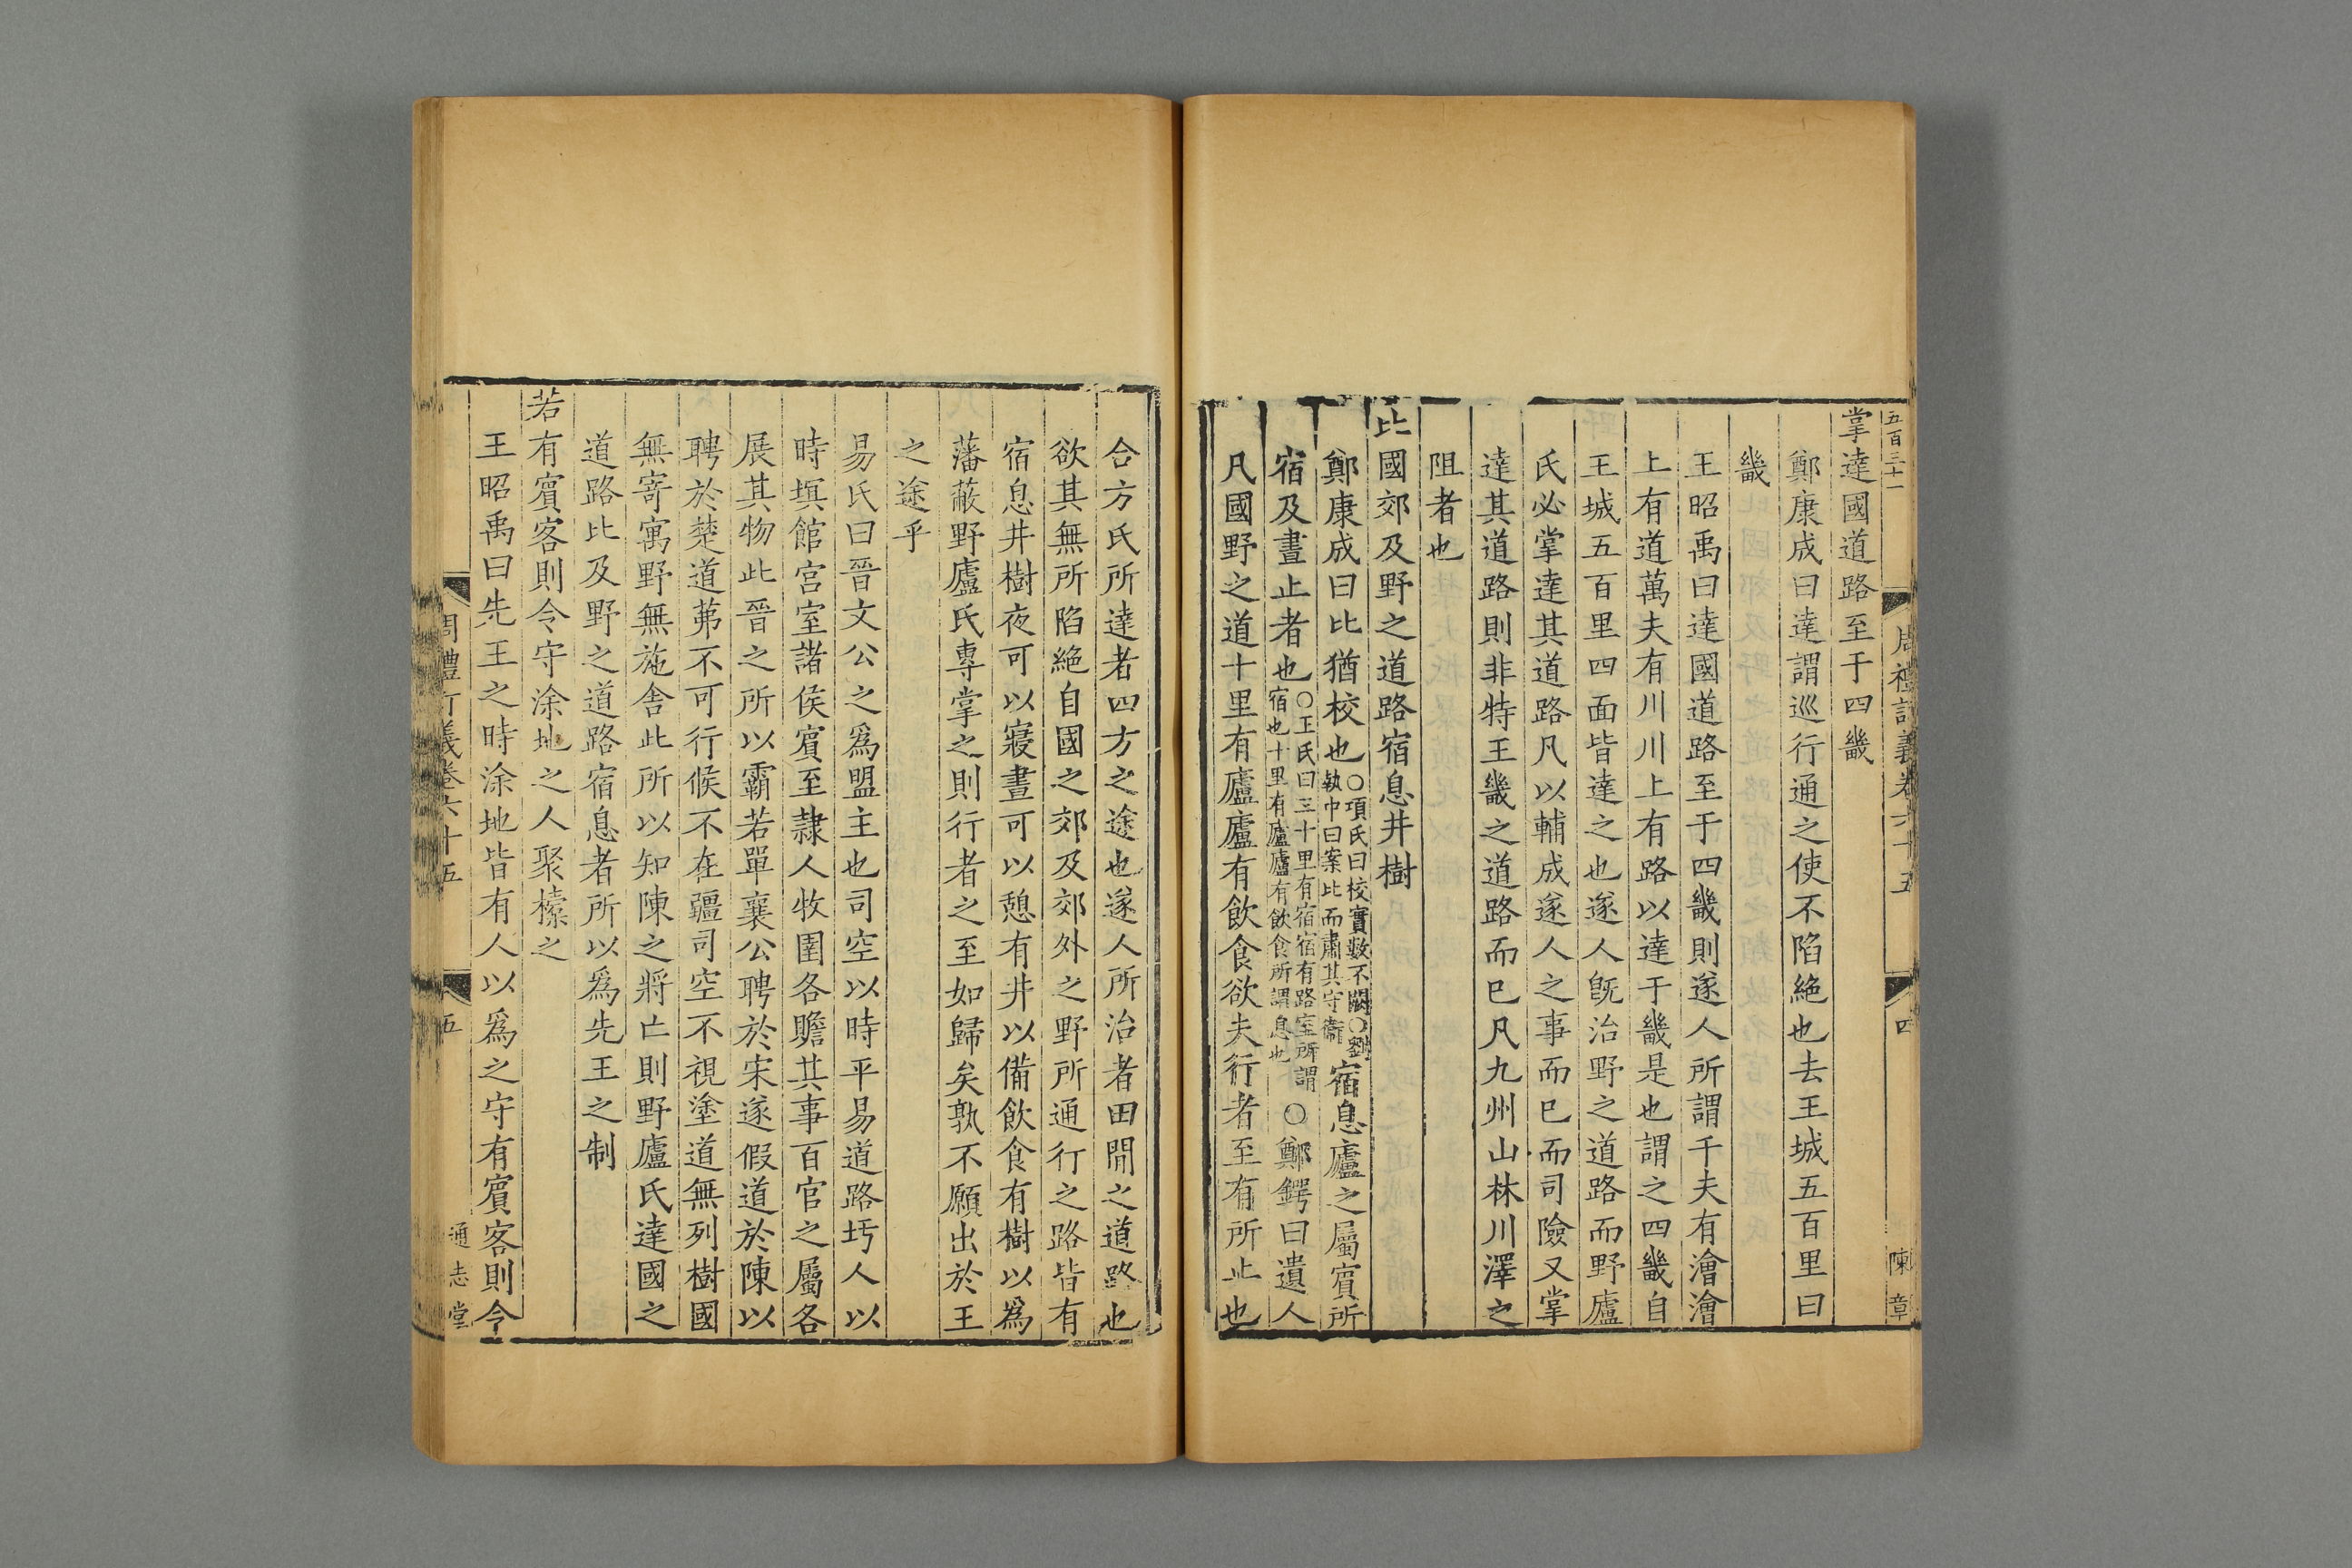 五百三十一 周禮訂義卷六十五 四 陳章
掌達國道路至于四畿
鄭康成曰達謂巡行通之使不陷絕也去王城五百里曰
畿
王昭禹曰達國道路至于四畿則遂人所謂千夫有澮澮
上有道萬夫有川川上有路以達于畿是也謂之四畿自
王城五百里四面皆達之也遂人旣治野之道路而野廬
氏必掌達其道路凡以輔成遂人之事而已而司險又掌
達其道路則非特王畿之道路而已凡九州山林川澤之
阻者也
比國郊及野之道路宿息井樹
鄭康成曰比猶校也○項氏曰校實數不闕○劉執中曰案比而肅其守衞宿息廬之屬賓所
宿及晝止者也○王氏曰三十里有宿宿有路室所謂宿也十里有廬廬有飲食所謂息也○鄭鍔曰遺人
凡國野之道十里有廬廬有飲食欲夫行者至有所止也
合方氏所達者四方之途也遂人所治者田閒之道路也
欲其無所陷絕自國之郊及郊外之野所通行之路皆有
宿息井樹夜可以寢晝可以憩有井以備飲食有樹以爲
藩蔽野廬氏專掌之則行者之至如歸矣孰不願出於王
之途乎
易氏曰晉文公之爲盟主也司空以時平易道路圬人以
時塓館宮室諸侯賓至隷人牧圉各贍其事百官之屬各
展其物此晉之所以霸若單襄公聘於宋遂假道於陳以
聘於楚道茀不可行候不在疆司空不視塗道無列樹國
無寄寓野無施舍此所以知陳之將亡則野廬氏達國之
道路比及野之道路宿息者所以爲先王之制
若有賓客則令守涂地之人聚櫜之
王昭禹曰先王之時涂地皆有人以爲之守有賓客則令
周禮訂義卷六十五 五 通志堂